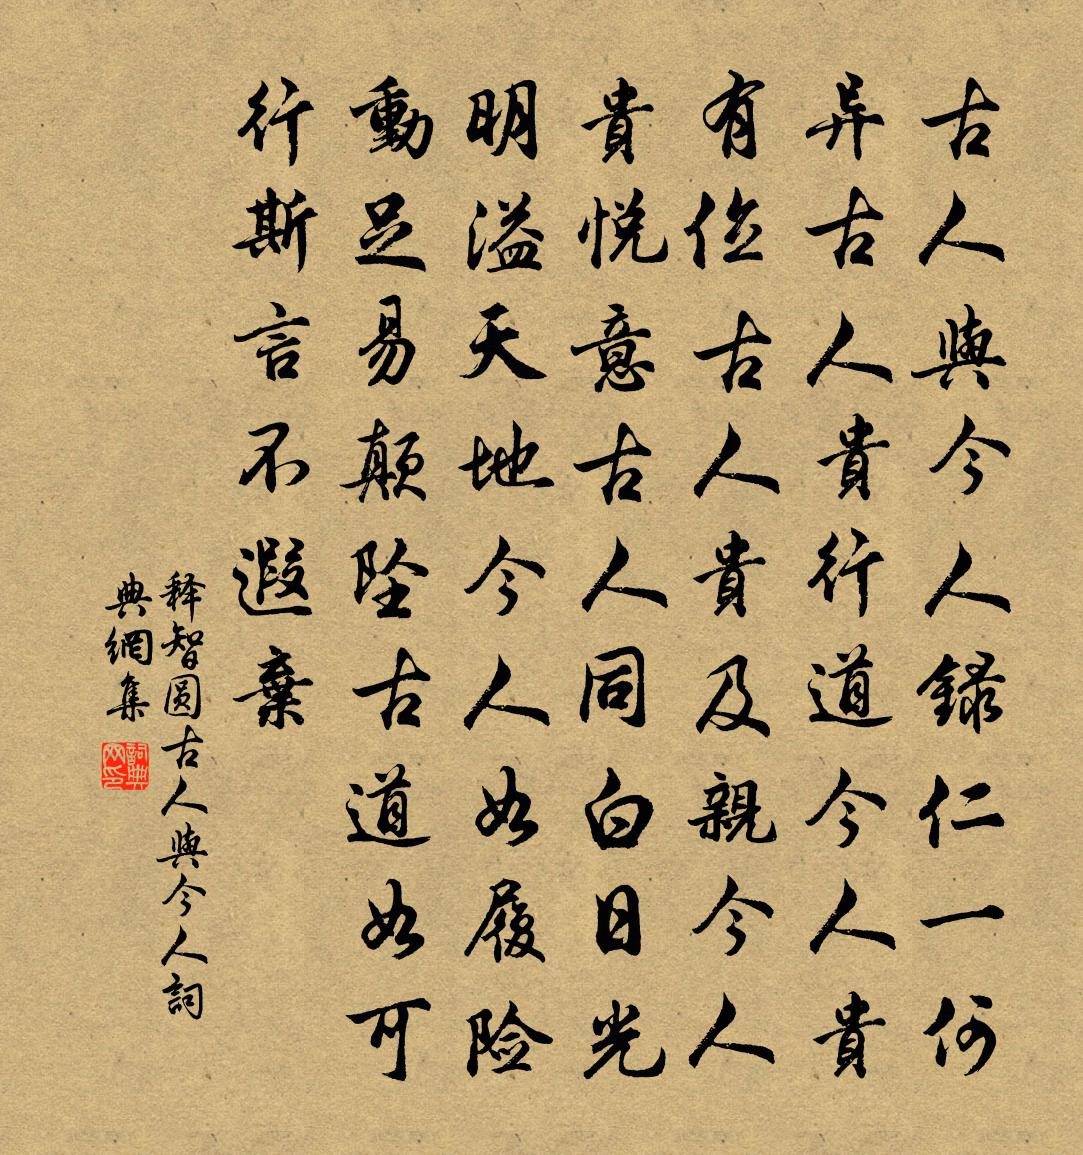 古人與今人録仁一何
异古人貴行道今人貴
有位古人貴及親今人
貴悦意古人同白日光
明溢天地今人如履险
動足易颠坠古道如可
行斯言不遐棄
释智圆古人與今人詞
典網集
詞典
网印